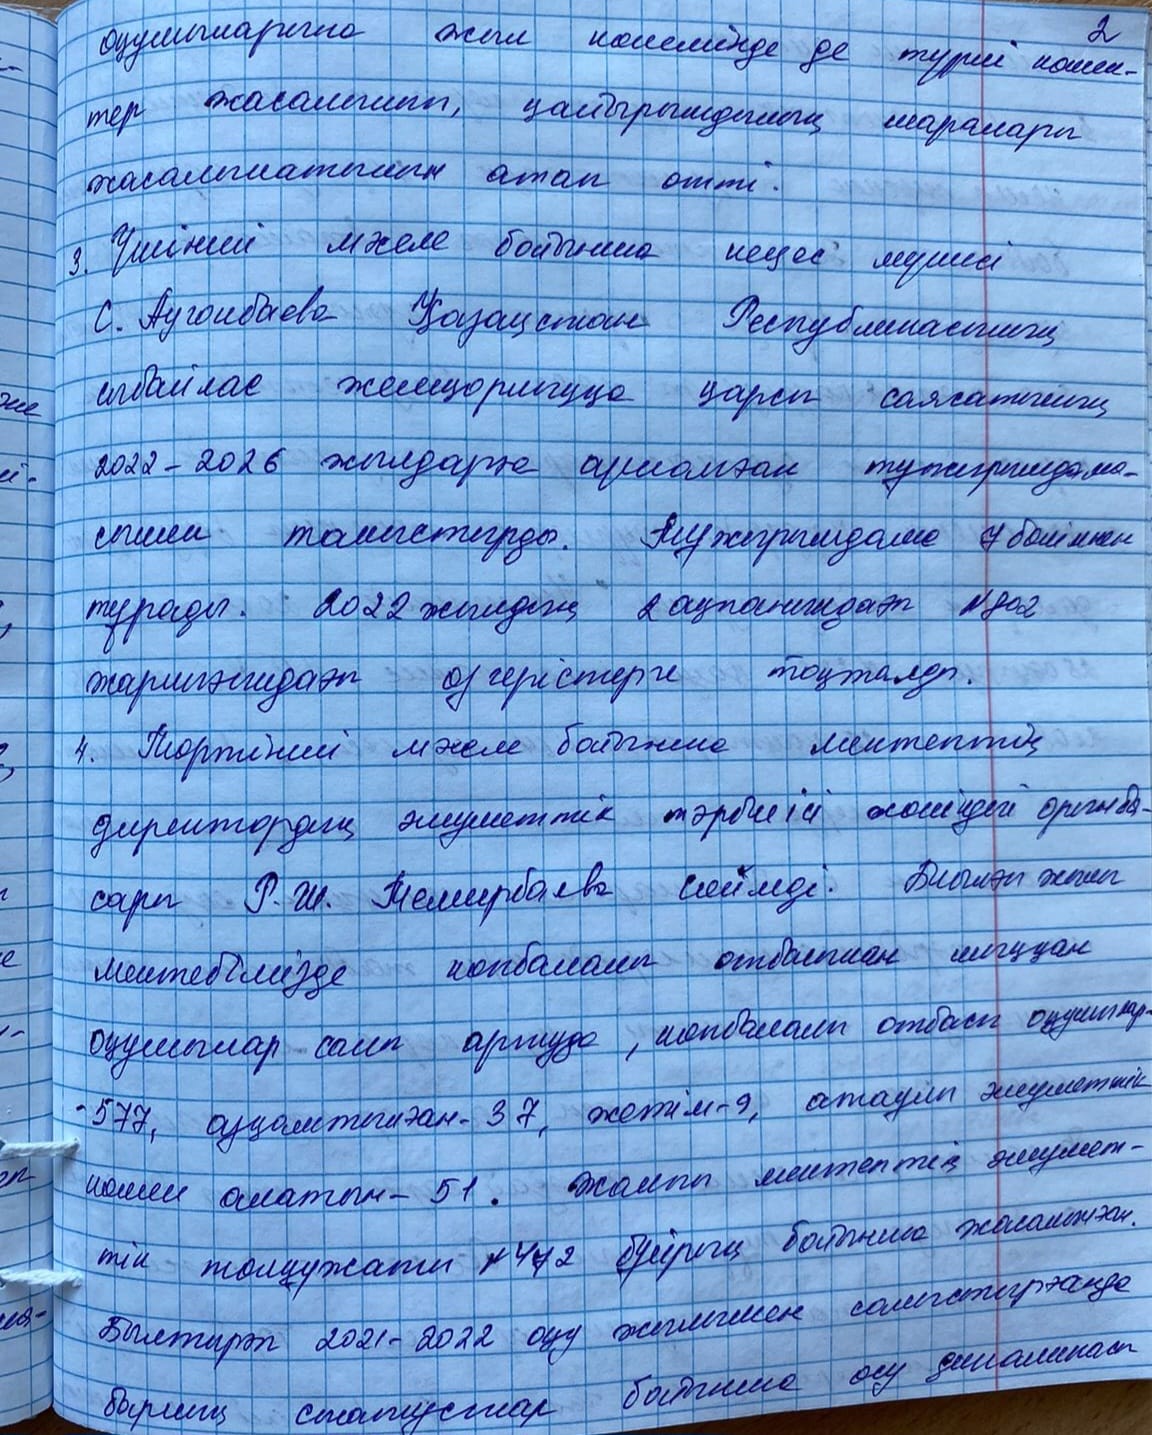 2
оқушыларына жыл көлемінде де түрлі көмек-
тер жасалынып, қайырымдылық шаралары
жасалынатынын атап өтті.
3. Үшінші мәселе бойынша кеңес мүшесі
С. Ауганбаева Қазақстан Республикасының
сыбайлас жемқорлыққа қарсы саясатының
2022-2026 жылдарға арналған тұжырымдама-
сымен таныстырды. Тұжырымдама 7 бөлімнен
тұрады. 2022 жылдың 2 ақпанындағы №802
жарлығындағы өзгерістерге тоқталды.
4. Төртінші мәселе бойынша мектептің
директордың әлуметтік тәрбиесі жөніндегі орынба-
сары Р. Ж. Темирбаева сөйледі. Биылғы жылы
мектебімізде көпбалалы отбасынан шыққан
оқушылар саны артуда, көпбалалы отбасы оқушылар-
-577, аз қамтылған-37, жетім-9, атаулы әлуметтік
көмек алатын-51. Жалпы мектептің әлумет-
тік төлқұжаты №472 бұйрық бойынша жасалынған.
Былтырғы 2021-2022 оқу жылымен салыстырғанда
барлық статустар бойынша өсу динамикасы